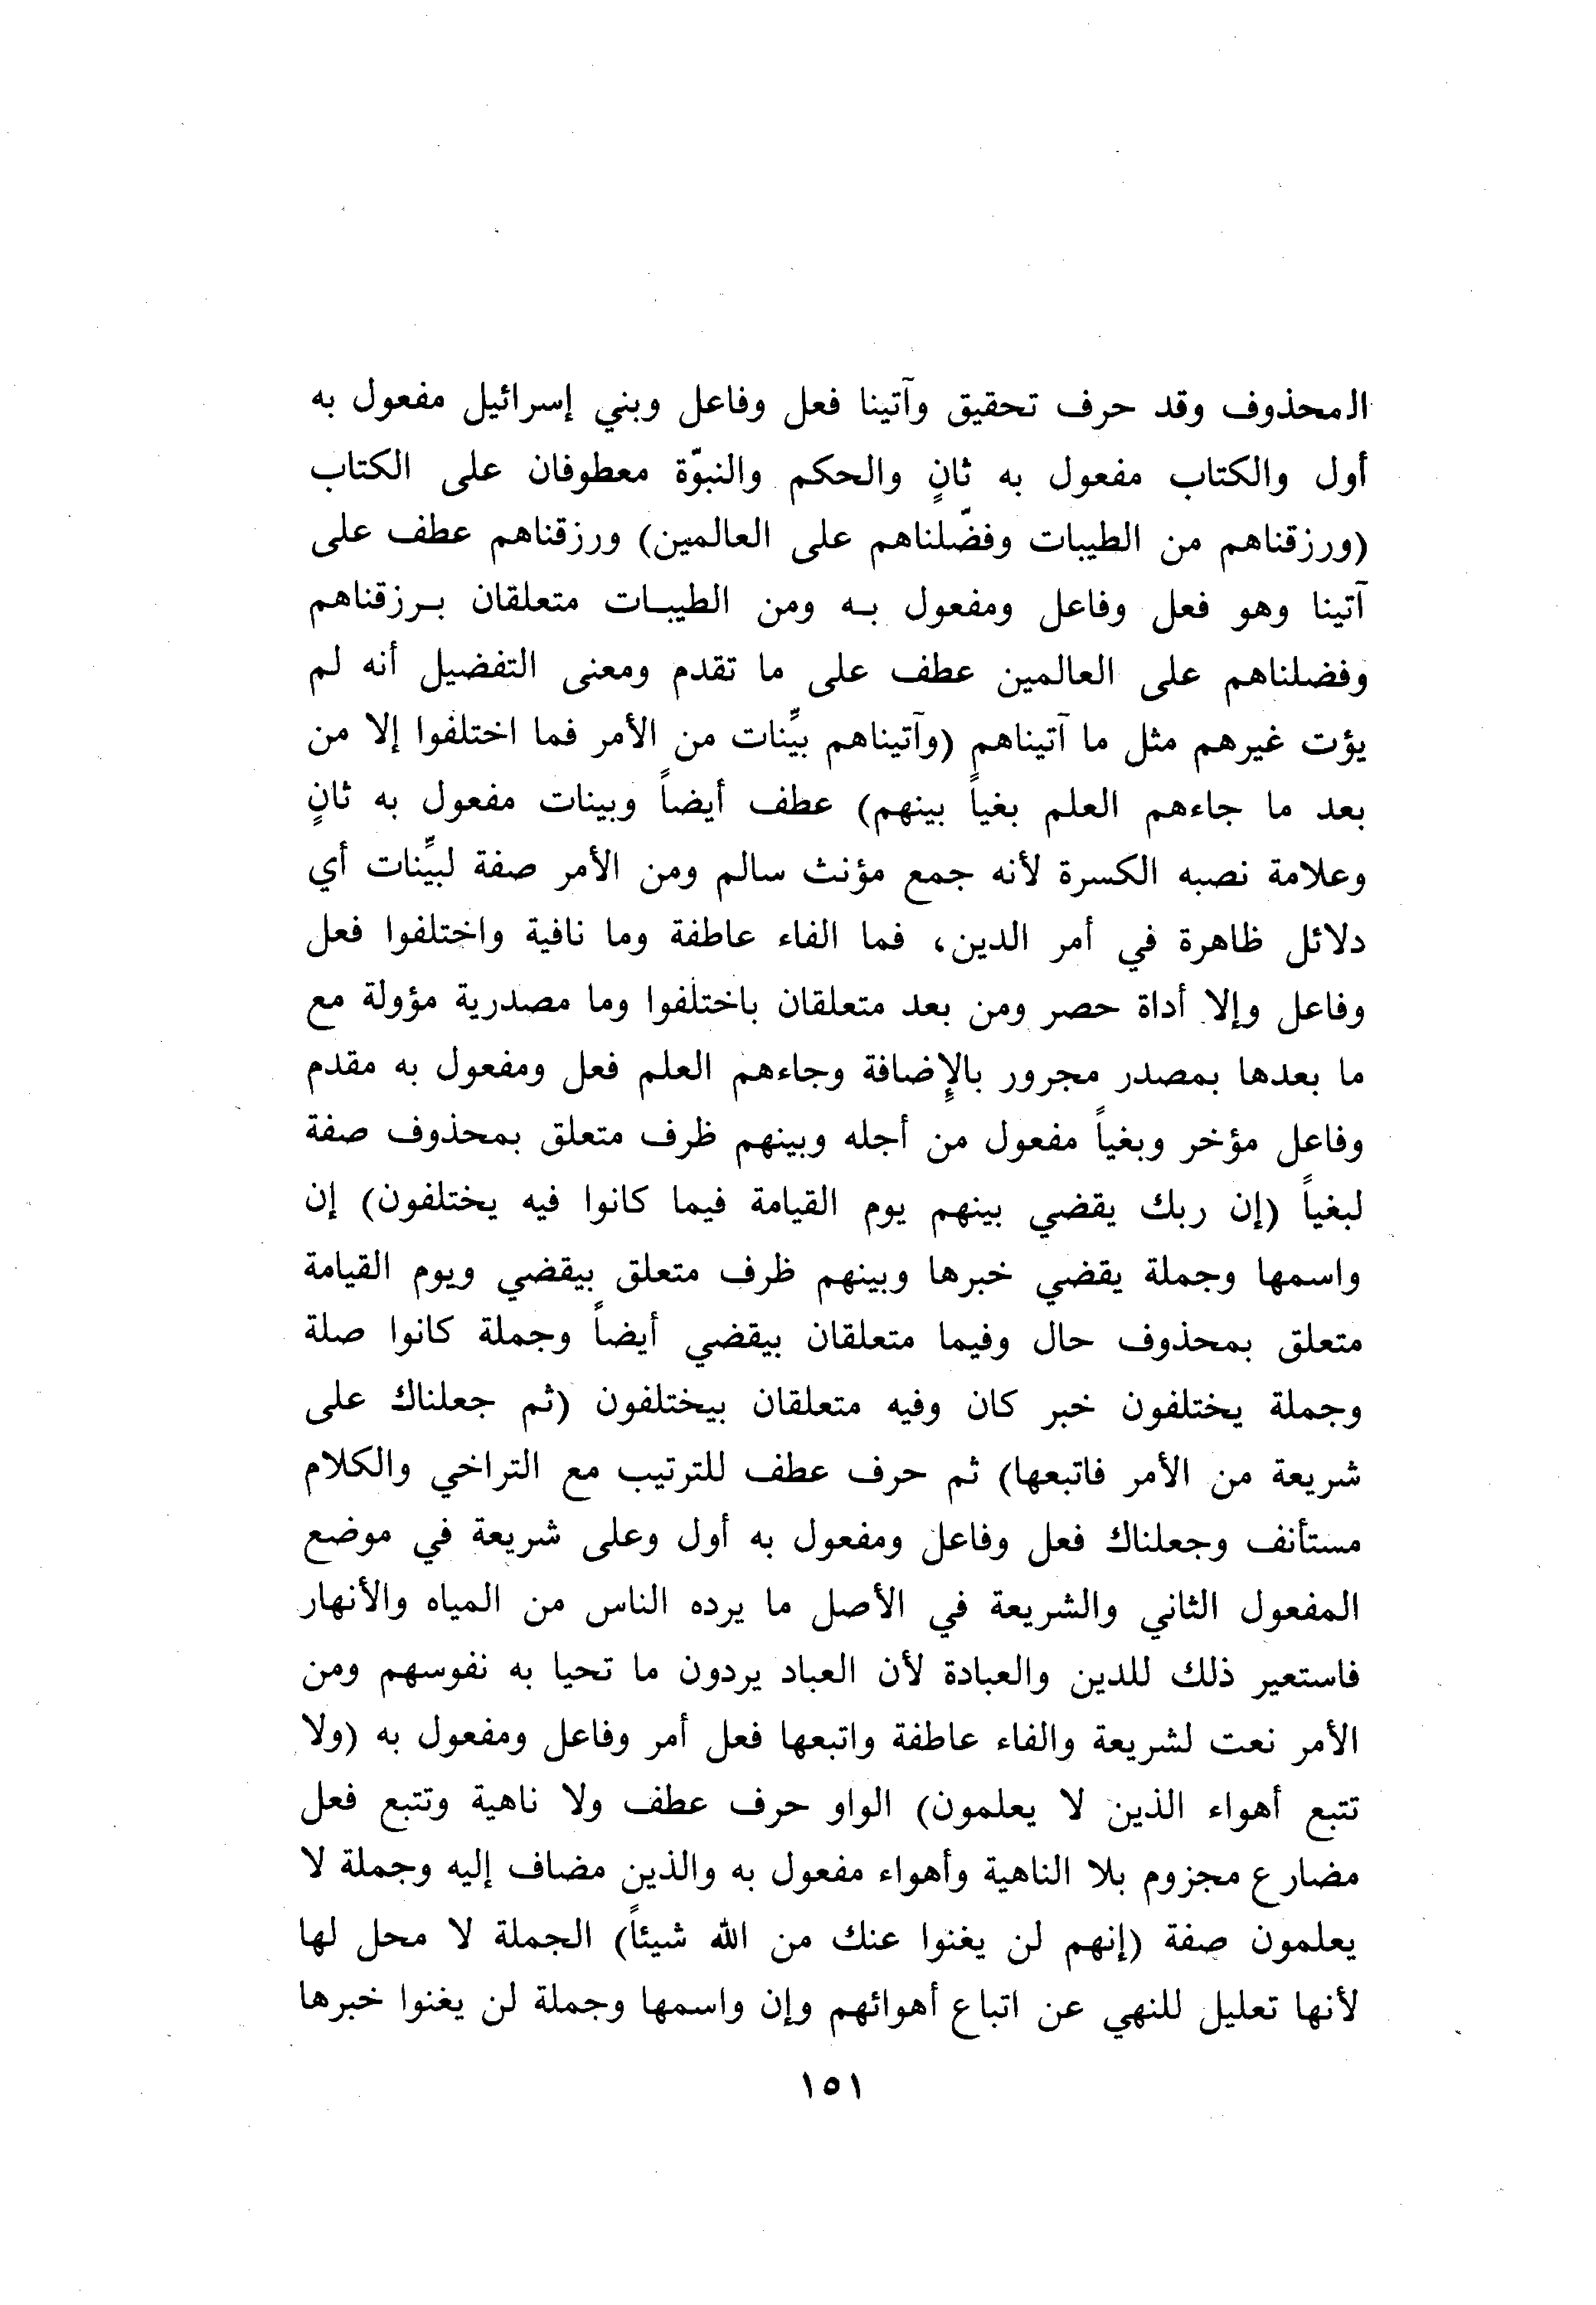 المحذوف وقد حرف تحقيق وآتينا فعل وفاعل وبني إسرائيل مفعول به
أول والكتاب مفعول به ثانٍ والحكم والنبوّة معطوفان على الكتاب
(ورزقناهم من الطيبات وفضّلناهم على العالمين) ورزقناهم عطف على
آتينا وهو فعل وفاعل ومفعول بـه ومن الطيبـات متعلقان بـرزقناهم
وفضلناهم على العالمين عطف على ما تقدم ومعنى التفضيل أنه لم
يؤت غيرهم مثل ما آتيناهم (وآتيناهم بيِّنات من الأمر فما اختلفوا إلا من
بعد ما جاءهم العلم بغياً بينهم) عطف أيضاً وبينات مفعول به ثانٍ
وعلامة نصبه الكسرة لأنه جمع مؤنث سالم ومن الأمر صفة لبيِّنات أي
دلائل ظاهرة في أمر الدين، فما الفاء عاطفة وما نافية واختلفوا فعل
وفاعل وإلا أداة حصر ومن بعد متعلقان باختلفوا وما مصدرية مؤولة مع
ما بعدها بمصدر مجرور بالإضافة وجاءهم العلم فعل ومفعول به مقدم
وفاعل مؤخر وبغياً مفعول من أجله وبينهم ظرف متعلق بمحذوف صفة
لبغياً (إن ربك يقضي بينهم يوم القيامة فيما كانوا فيه يختلفون) إن
واسمها وجملة يقضي خبرها وبينهم ظرف متعلق بيقضي ويوم القيامة
متعلق بمحذوف حال وفيما متعلقان بيقضي أيضاً وجملة كانوا صلة
وجملة يختلفون خبر كان وفيه متعلقان بيختلفون (ثم جعلناك على
شريعة من الأمر فاتبعها) ثم حرف عطف للترتيب مع التراخي والكلام
مستأنف وجعلناك فعل وفاعل ومفعول به أول وعلى شريعة في موضع
المفعول الثاني والشريعة في الأصل ما يرده الناس من المياه والأنهار
فاستعير ذلك للدين والعبادة لأن العباد يردون ما تحيا به نفوسهم ومن
الأمر نعت لشريعة والفاء عاطفة واتبعها فعل أمر وفاعل ومفعول به (ولا
تتبع أهواء الذين لا يعلمون) الواو حرف عطف ولا ناهية وتتبع فعل
مضارع مجزوم بلا الناهية وأهواء مفعول به والذين مضاف إليه وجملة لا
يعلمون صفة (إنهم لن يغنوا عنك من الله شيئاً) الجملة لا محل لها
لأنها تعليل للنهي عن اتباع أهوائهم وإن واسمها وجملة لن يغنوا خبرها
١٥١